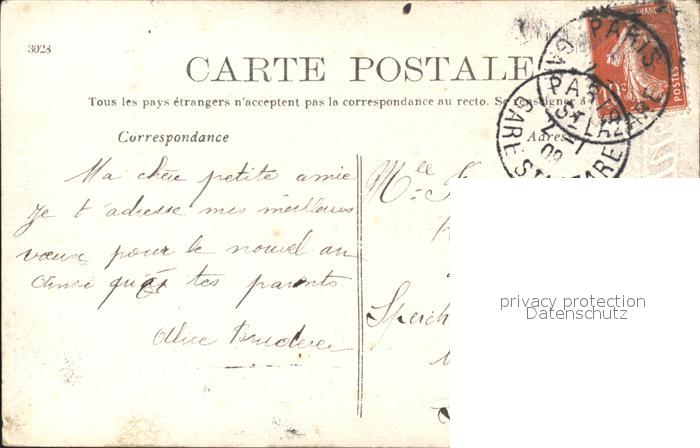 3028
CARTE POSTALE
Tous les pays étrangers n'acceptent pas la correspondance au recto. Se renseigner à
Correspondance
Adresse
PARIS
GARE ST LAZARE
PARIS
GARE ST LAZARE
POSTES
Ma chère petite amie
Je t'adresse mes meilleurs
vœux pour le nouvel an
ainsi qu'à tes parents
Alice
Mlle
privacy protection
Datenschutz